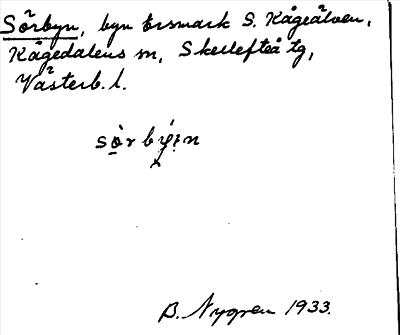 Sörbyn, byn Ersmark S. Kågeälven,
Kågedalens sn, Skellefteå tg,
Västerb. l.
B. Nygren 1933.